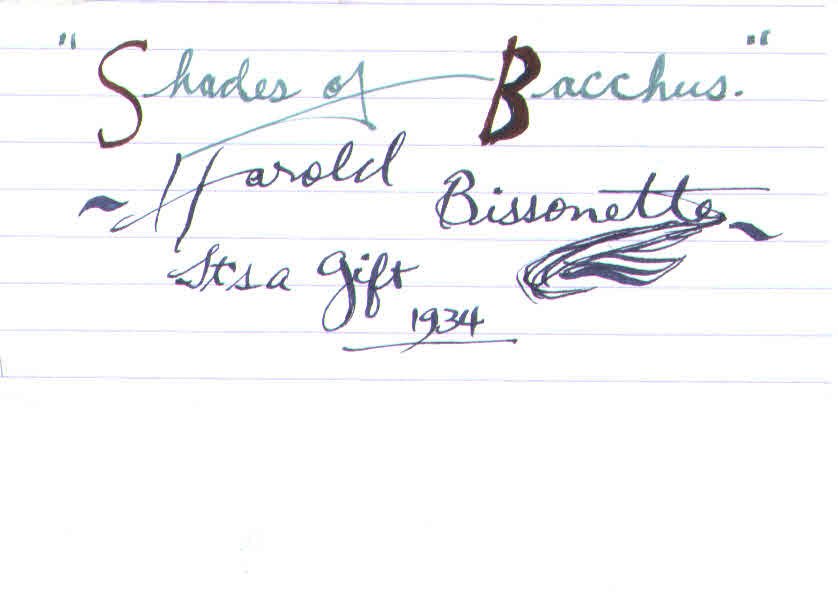 "Shades of Bacchus."
~ Harold Bissonette ~
It's a Gift
1934